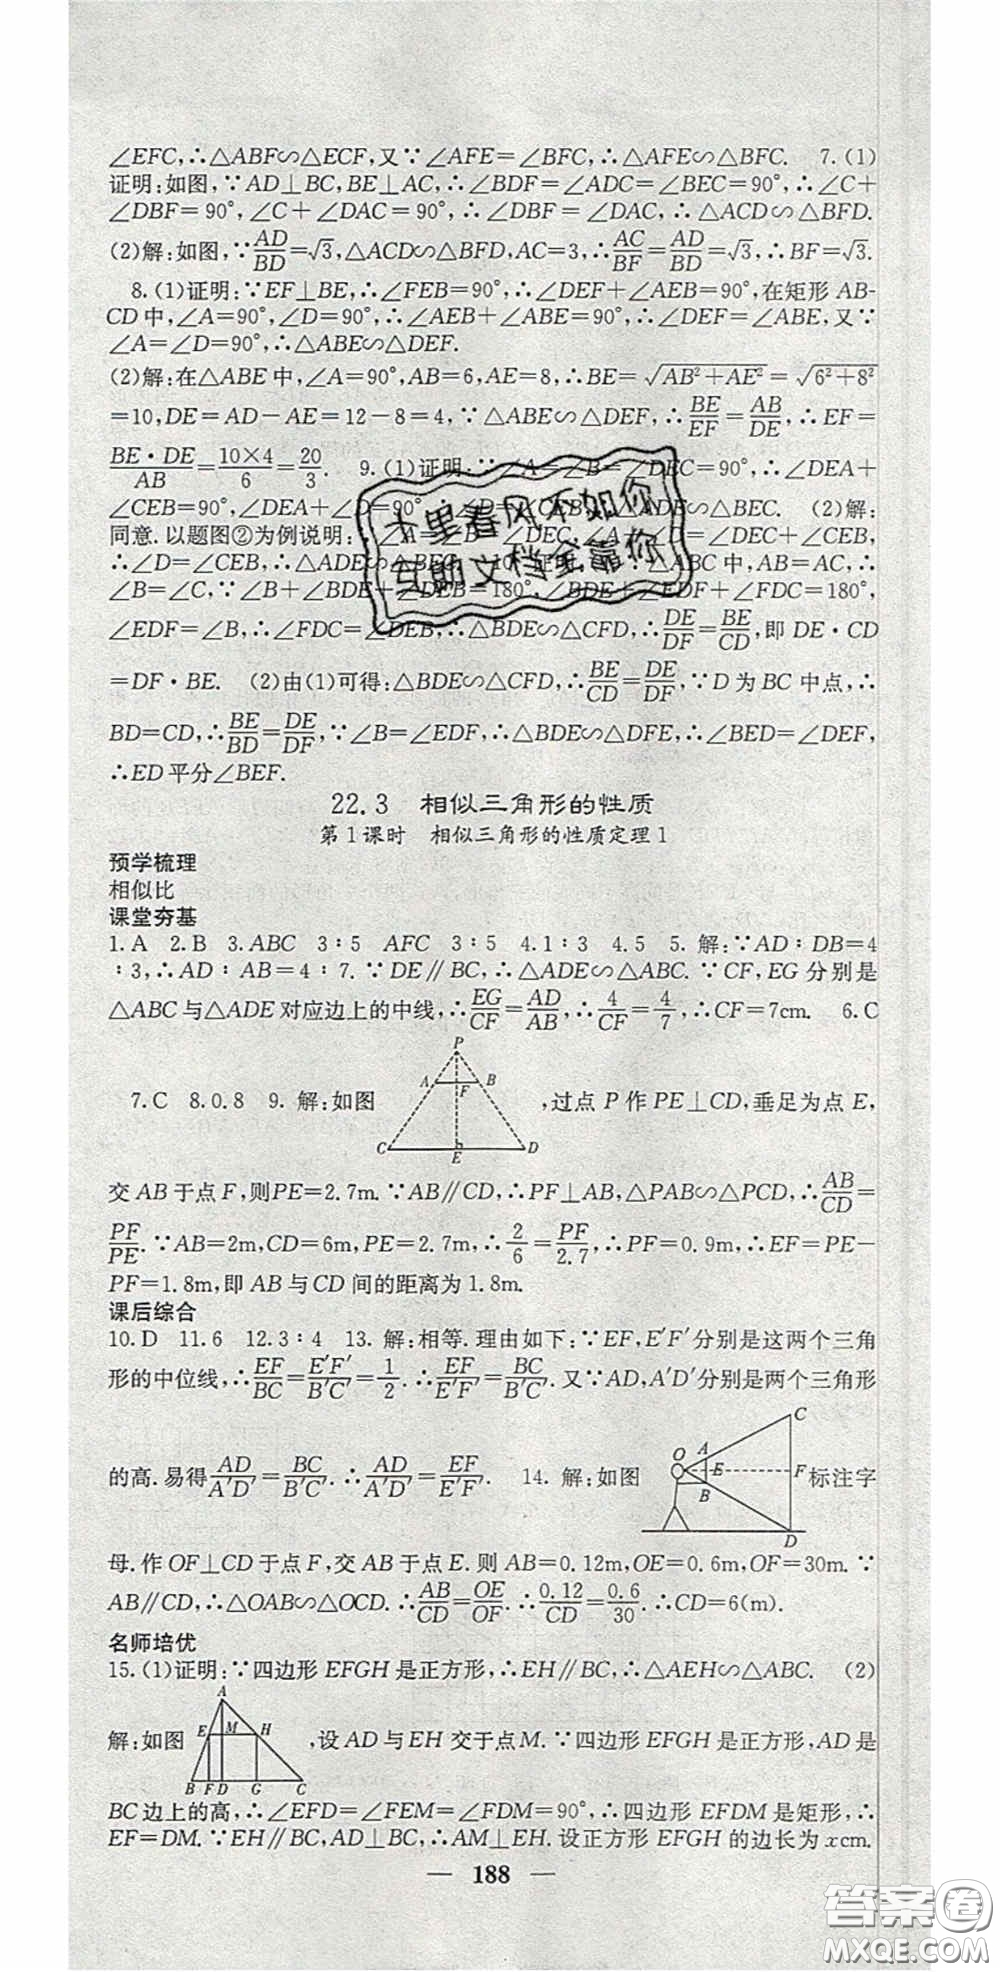 ∠EFC,∴△ABF∽△ECF,又∵∠AFE=∠BFC,∴△AFE∽△BFC. 7.(1)
证明:如图,∵AD⊥BC,BE⊥AC,∴∠BDF=∠ADC=∠BEC=90°,∴∠C+
∠DBF=90°,∠C+∠DAC=90°,∴∠DBF=∠DAC,∴△ACD∽△BFD.
(2)解:如图,∵AD/BD=√3,△ACD∽△BFD,AC=3,∴AC/BF=AD/BD=√3,∴BF=√3.
8.(1)证明:∵EF⊥BE,∴∠FEB=90°,∴∠DEF+∠AEB=90°,在矩形AB-
CD中,∠A=90°,∠D=90°,∴∠AEB+∠ABE=90°,∴∠DEF=∠ABE,又∵
∠A=∠D=90°,∴△ABE∽△DEF.
(2)解:在△ABE中,∠A=90°,AB=6,AE=8,∴BE=√(AB²+AE²)=√(6²+8²)
=10,DE=AD-AE=12-8=4,∵△ABE∽△DEF,∴BE/EF=AB/DE,∴EF=
BE·DE/AB=10×4/6=20/3. 9.(1)证明:∵∠A=∠B=∠DEC=90°,∴∠DEA+
∠CEB=90°,∠DEA+∠D=90°,∴∠D=∠CEB,∴△ADE∽△BEC. (2)解:
同意.以题图②为例说明:∵∠A=∠B=∠DEC,∠A+∠D=∠DEC+∠CEB,
∴∠D=∠CEB,∴△ADE∽△BEC. 10.证明:(1)∵△ABC中,AB=AC,∴
∠B=∠C,∵∠B+∠BDE+∠DEB=180°,∠BDE+∠EDF+∠FDC=180°,
∠EDF=∠B,∴∠FDC=∠DEB,∴△BDE∽△CFD,∴DE/DF=BE/CD,即DE·CD
=DF·BE. (2)由(1)可得:△BDE∽△CFD,∴BE/CD=DE/DF,∵D为BC中点,∴
BD=CD,∴BE/BD=DE/DF,∵∠B=∠EDF,∴△BDE∽△DFE,∴∠BED=∠DEF,
∴ED平分∠BEF.
22.3 相似三角形的性质
第1课时 相似三角形的性质定理1
预学梳理
相似比
课堂夯基
1.A 2.B 3.ABC 3∶5 AFC 3∶5 4.1∶3 4.5 5. 解:∵AD∶DB=4
∶3,∴AD∶AB=4∶7.∵DE∥BC,∴△ADE∽△ABC.∵CF,EG分别是
△ABC与△ADE对应边上的中线,∴EG/CF=AD/AB,∴4/CF=4/7,∴CF=7cm. 6.C
P
A F B
C E D
7.C 8.0.8 9. 解:如图 ,过点P作PE⊥CD,垂足为点E,
交AB于点F,则PE=2.7m.∵AB∥CD,∴PF⊥AB,△PAB∽△PCD,∴AB/CD=
PF/PE.∵AB=2m,CD=6m,PE=2.7m,∴2/6=PF/2.7,∴PF=0.9m,∴EF=PE-
PF=1.8m,即AB与CD间的距离为1.8m.
课后综合
10.D 11.6 12.3∶4 13. 解:相等.理由如下:∵EF,E′F′分别是这两个三角
形的中位线,∴EF/BC=E′F′/B′C′=1/2.∴EF/E′F′=BC/B′C′.又∵AD,A′D′分别是两个三角形
的高.易得AD/A′D′=BC/B′C′.∴AD/A′D′=EF/E′F′. 14. 解:如图 标注字
C
O A E F
B
D
母.作OF⊥CD于点F,交AB于点E.则AB=0.12m,OE=0.6m,OF=30m.∵
AB∥CD,∴△OAB∽△OCD.∴AB/CD=OE/OF.∴0.12/CD=0.6/30.∴CD=6(m).
名师培优
15.(1)证明:∵四边形EFGH是正方形,∴EH∥BC,∴△AEH∽△ABC. (2)
A
E M H
B F D G C
解:如图 ,设AD与EH交于点M.∵四边形EFGH是正方形,AD是
BC边上的高,∴∠EFD=∠FEM=∠FDM=90°,∴四边形EFDM是矩形,∴
EF=DM.∵EH∥BC,AD⊥BC,∴AM⊥EH.设正方形EFGH的边长为xcm.
— 188 —
十里春风不如你
互助文档全靠你
答案圈
MXQE.COM